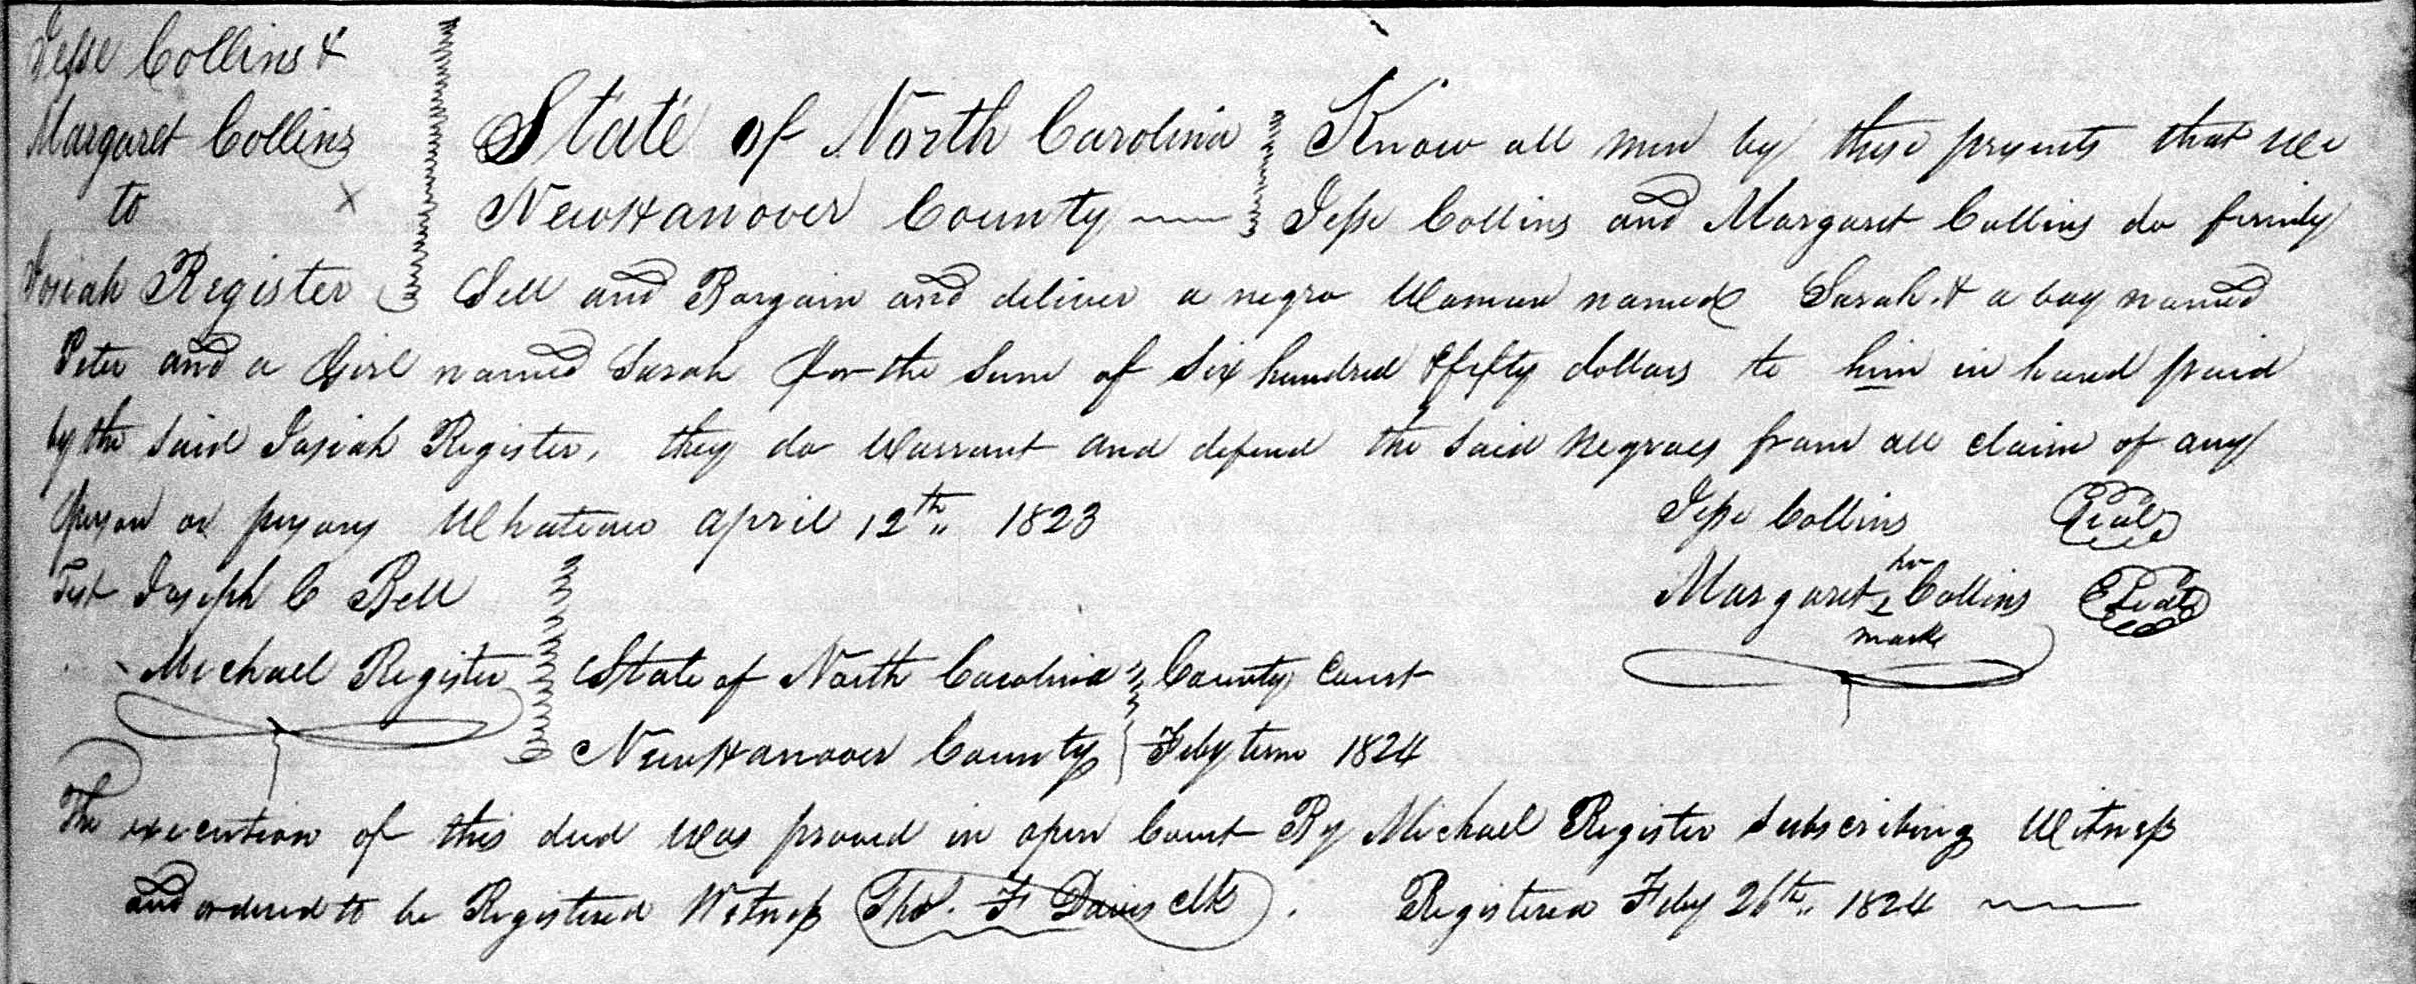 Jesse Collins &
Margaret Collins
to
Josiah Register
State of North Carolina Know all men by these presents that we
NewHanover County Jesse Collins and Margaret Collins do firmly
Sell and Bargain and deliver a negro Woman named Sarah & a boy named
Peter and a Girl named Sarah for the Sum of Six hundred & fifty dollars to him in hand paid
by the said Josiah Register, they do Warrant and defend the said Negroes from all claim of any
person or persons Whatever april 12th 1823
Jesse Collins Seal
her
Margaret Collins Seal
mark
Test Joseph C Bell
Michael Register
State of North Carolina County Court
NewHanover County Feby term 1824
The execution of this deed was proved in open Court By Michael Register Subscribing Witness
and ordered to be Registered Witness Tho. F Davis clk. Registered Feby 26th 1824